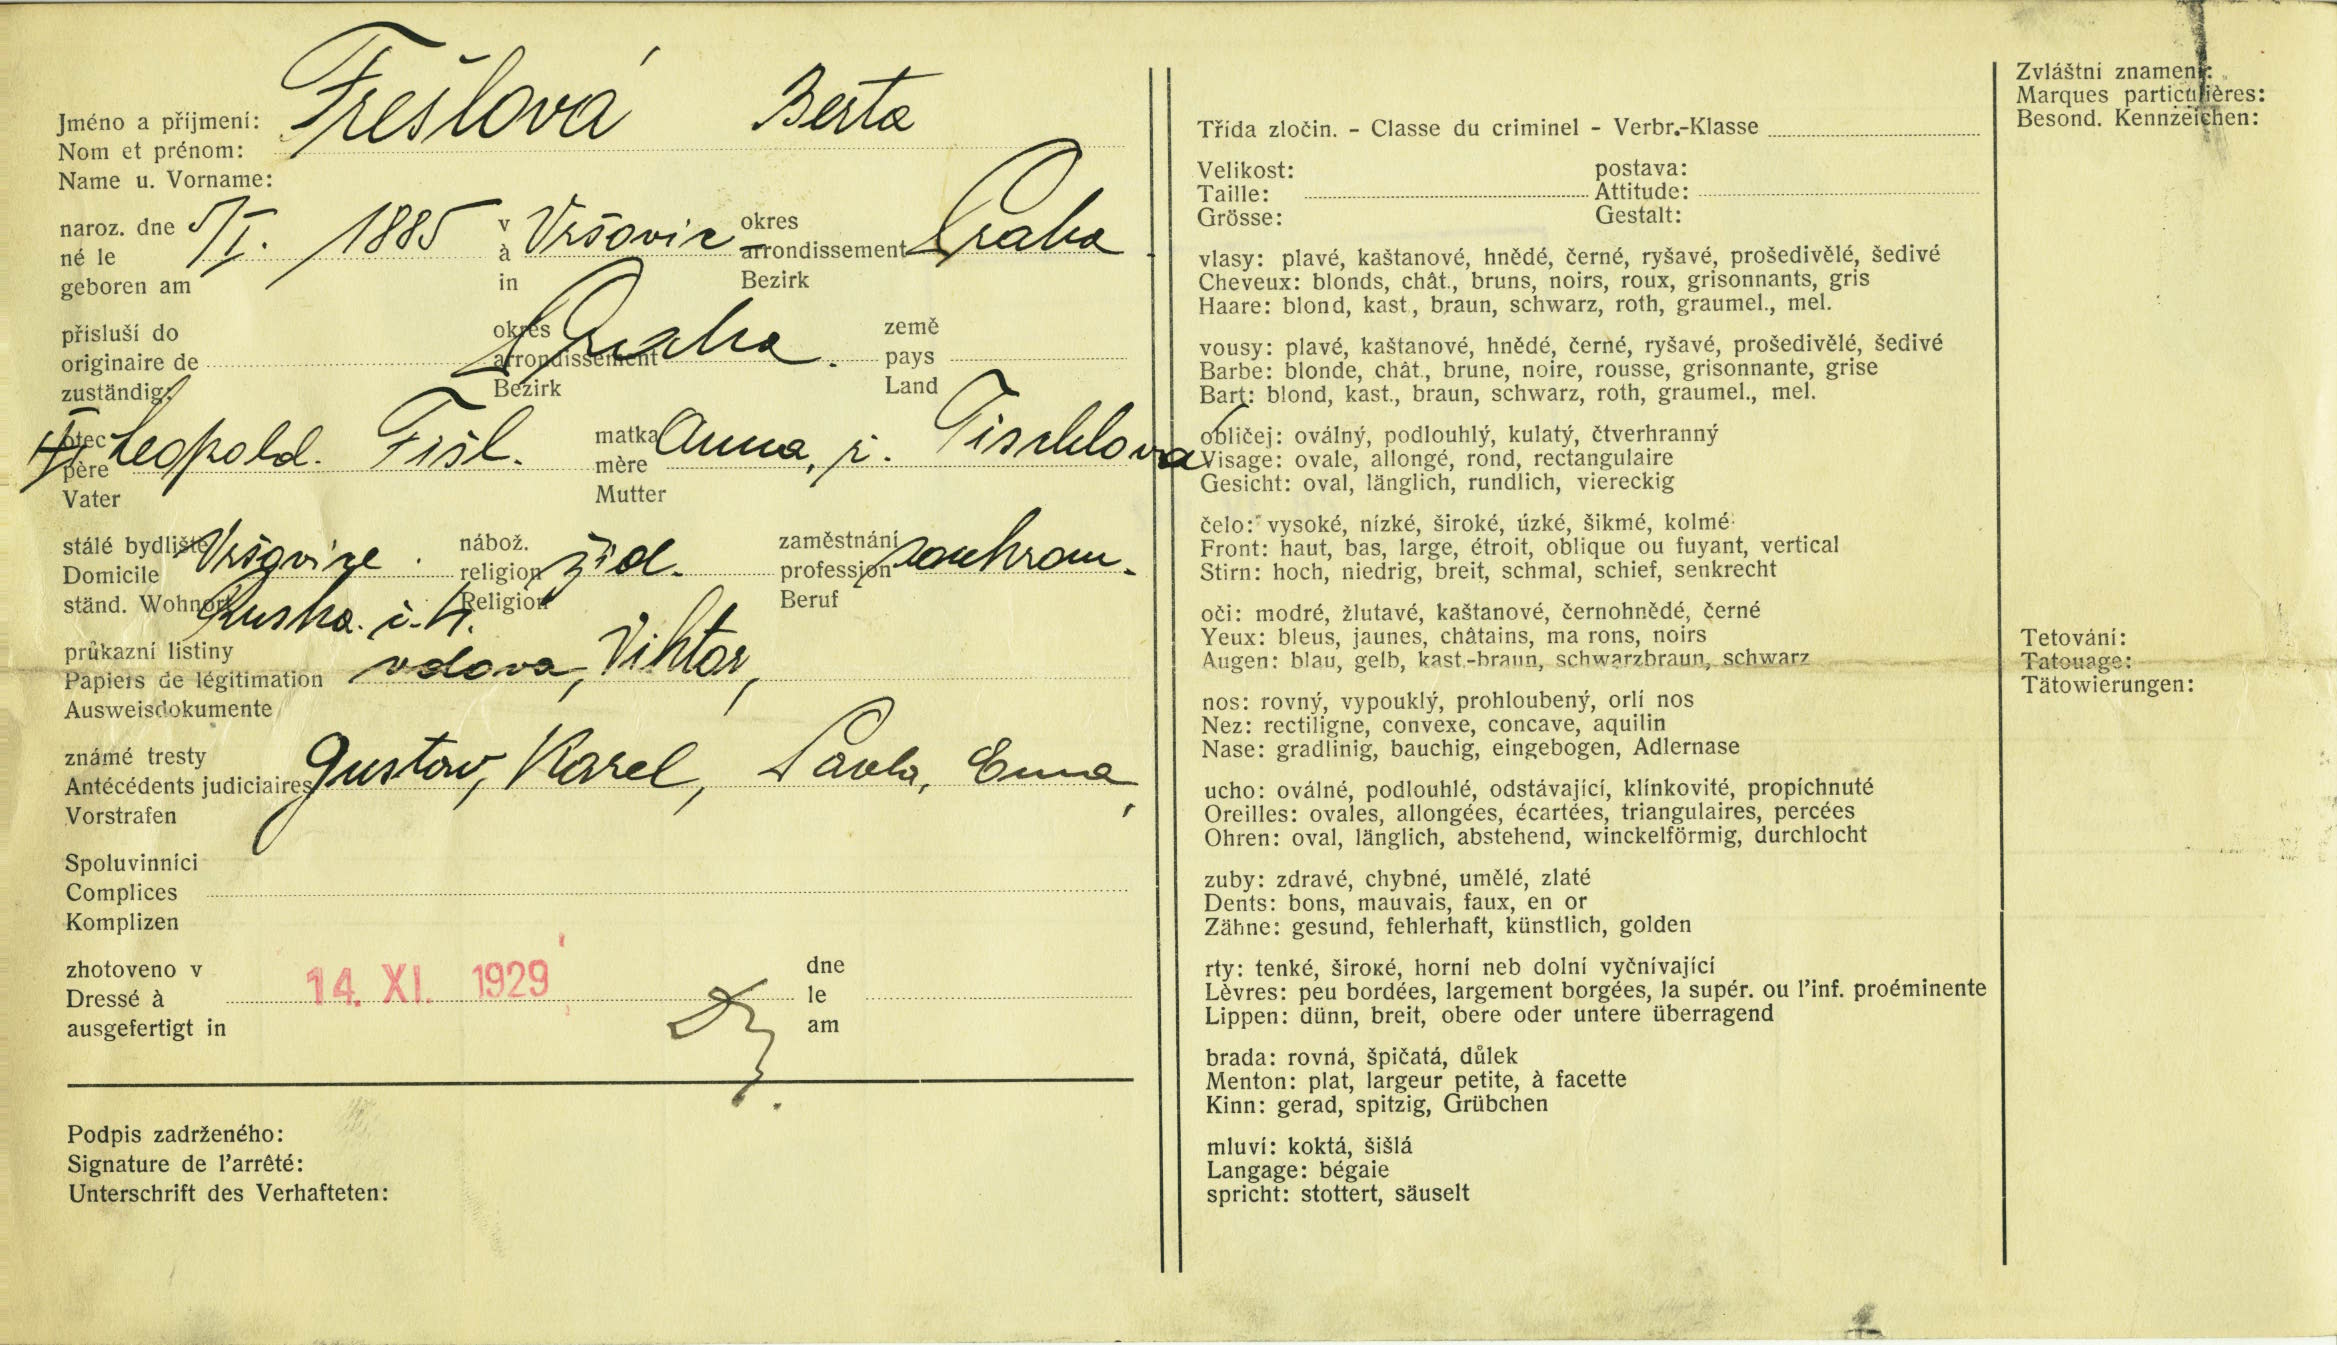 Jméno a příjmení: Frešlová Berta
Nom et prénom:
Name u. Vorname:
naroz. dne 5/I. 1885 v Vršovice okres Praha
né le à arrondissement
geboren am in Bezirk
přísluší do okres Praha. země
originaire de arrondissement pays
zuständig: Bezirk Land
otec Leopold. Fišl. matka Anna, r. Tischlova
père mère
Vater Mutter
stálé bydliště Vršovice. nábož. žid. zaměstnání soukrom.
Domicile religion profession
ständ. Wohnort Ruska. č. 4. Religion Beruf
průkazní listiny
Papiers de légitimation vdova, Viktor,
Ausweisdokumente
známé tresty
Antécédents judiciaires Gustav, Karel, Pavla, Emma,
Vorstrafen
Spoluvinníci
Complices
Komplizen
zhotoveno v 14. XI. 1929 dne
Dressé à le
ausgefertigt in am
Podpis zadrženého:
Signature de l'arrêté:
Unterschrift des Verhafteten:
Třída zločin. - Classe du criminel - Verbr.-Klasse
Velikost: postava:
Taille: Attitude:
Grösse: Gestalt:
vlasy: plavé, kaštanové, hnědé, černé, ryšavé, prošedivělé, šedivé
Cheveux: blonds, chât., bruns, noirs, roux, grisonnants, gris
Haare: blond, kast., braun, schwarz, roth, graumel., mel.
vousy: plavé, kaštanové, hnědé, černé, ryšavé, prošedivělé, šedivé
Barbe: blonde, chât., brune, noire, rousse, grisonnante, grise
Bart: blond, kast., braun, schwarz, roth, graumel., mel.
obličej: oválný, podlouhlý, kulatý, čtverhranný
Visage: ovale, allongé, rond, rectangulaire
Gesicht: oval, länglich, rundlich, viereckig
čelo: vysoké, nízké, široké, úzké, šikmé, kolmé
Front: haut, bas, large, étroit, oblique ou fuyant, vertical
Stirn: hoch, niedrig, breit, schmal, schief, senkrecht
oči: modré, žlutavé, kaštanové, černohnědé, černé
Yeux: bleus, jaunes, châtains, ma rons, noirs
Augen: blau, gelb, kast.-braun, schwarzbraun, schwarz
nos: rovný, vypouklý, prohloubený, orlí nos
Nez: rectiligne, convexe, concave, aquilin
Nase: gradlinig, bauchig, eingebogen, Adlernase
ucho: oválné, podlouhlé, odstávající, klínkovité, propíchnuté
Oreilles: ovales, allongées, écartées, triangulaires, percées
Ohren: oval, länglich, abstehend, winckelförmig, durchlocht
zuby: zdravé, chybné, umělé, zlaté
Dents: bons, mauvais, faux, en or
Zähne: gesund, fehlerhaft, künstlich, golden
rty: tenké, široké, horní neb dolní vyčnívající
Lèvres: peu bordées, largement borgées, la supér. ou l'inf. proéminente
Lippen: dünn, breit, obere oder untere überragend
brada: rovná, špičatá, důlek
Menton: plat, largeur petite, à facette
Kinn: gerad, spitzig, Grübchen
mluví: koktá, šišlá
Langage: bégaie
spricht: stottert, säuselt
Zvláštní znamení:
Marques particulières:
Besond. Kennzeichen:
Tetování:
Tatouage:
Tätowierungen: